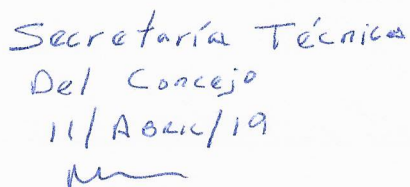 Secretaría Técnica
Del Concejo
11/ABRIL/19